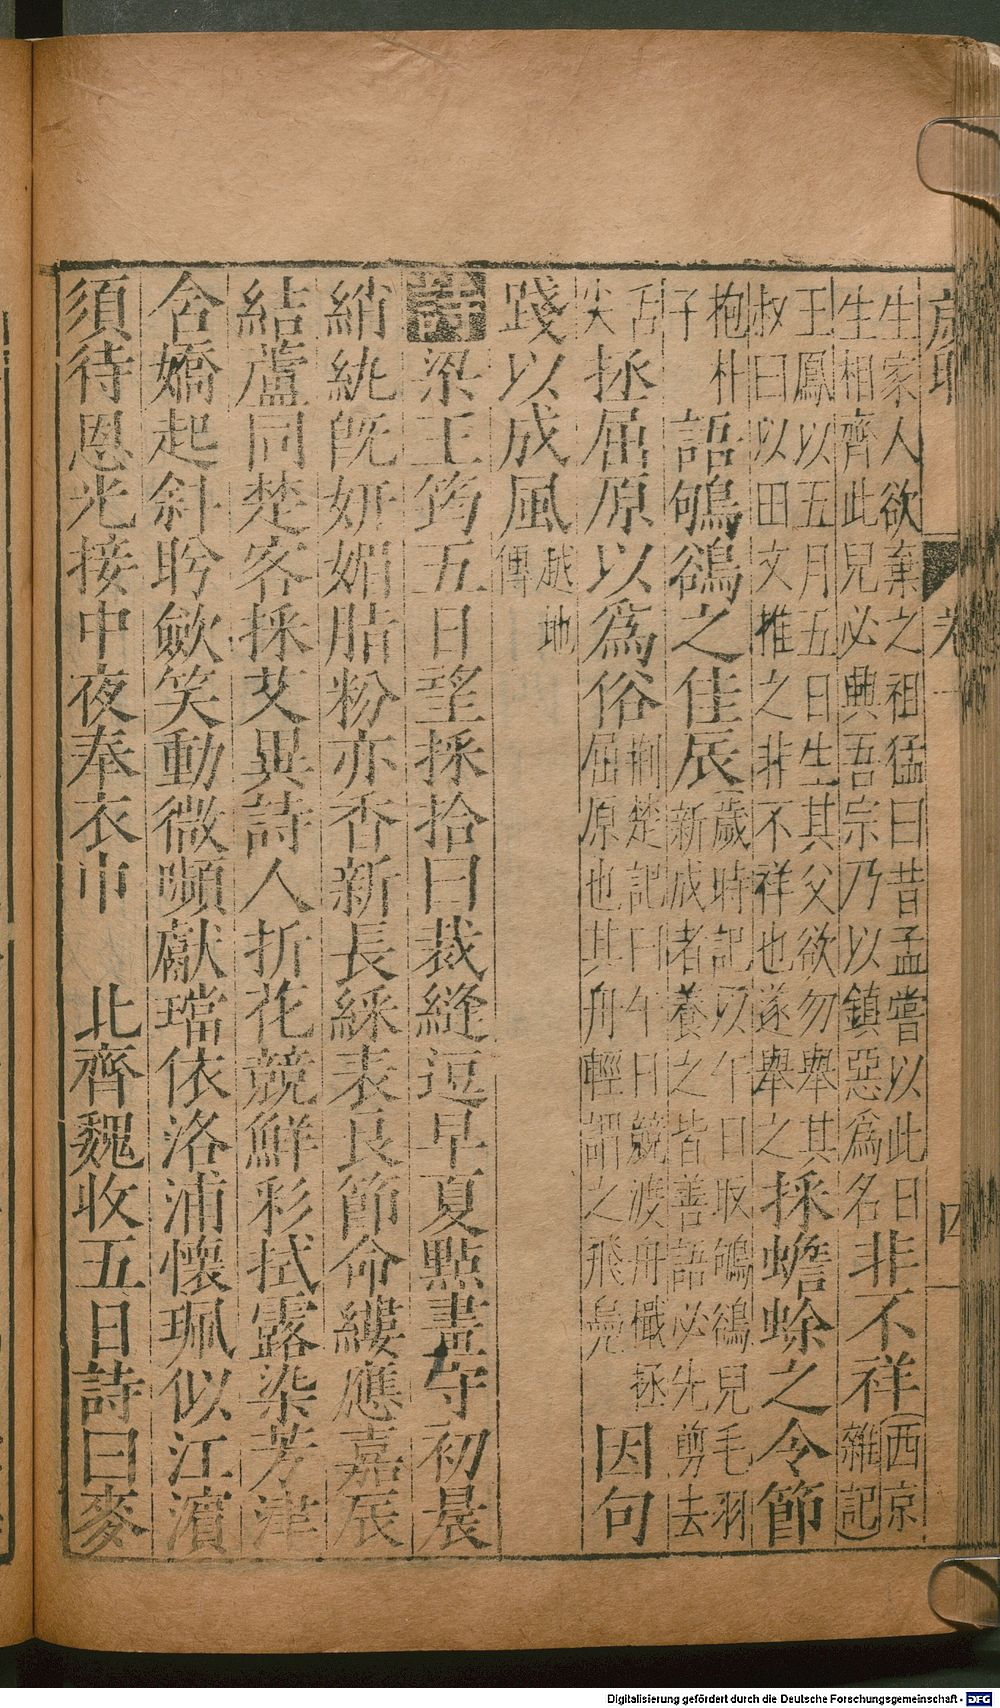 卷一 四
生家人欲棄之祖猛曰昔孟嘗以此日
生相齊此兒必興吾宗乃以鎮惡爲名
非不祥
西京
雜記
王鳳以五月五日生其父欲勿舉其
叔曰以田文推之非不祥也遂舉之
採蟾蜍之令節
抱朴
子
語鴝鵒之佳辰
歲時記以午日取鴝鵒兒毛羽
新成者養之皆善語必先剪去
舌
尖
拯屈原以爲俗
荆楚記曰午日競渡舟檝拯
屈原也其舟輕謂之飛鳧
因句
踐以成風
越地
傳
詩 梁王筠五日望採拾曰裁縫逗早夏點畫守初晨
綃紈旣妍媚脂粉亦香新長綵表良節命縷應嘉辰
結蘆同楚客採艾異詩人折花競鮮彩拭露染芳津
含嬌起斜盻斂笑動微嚬獻璫依洛浦懷珮似江濱
須待恩光接中夜奉衣巾 北齊魏收五日詩曰麥
Digitalisierung gefördert durch die Deutsche Forschungsgemeinschaft - DFG